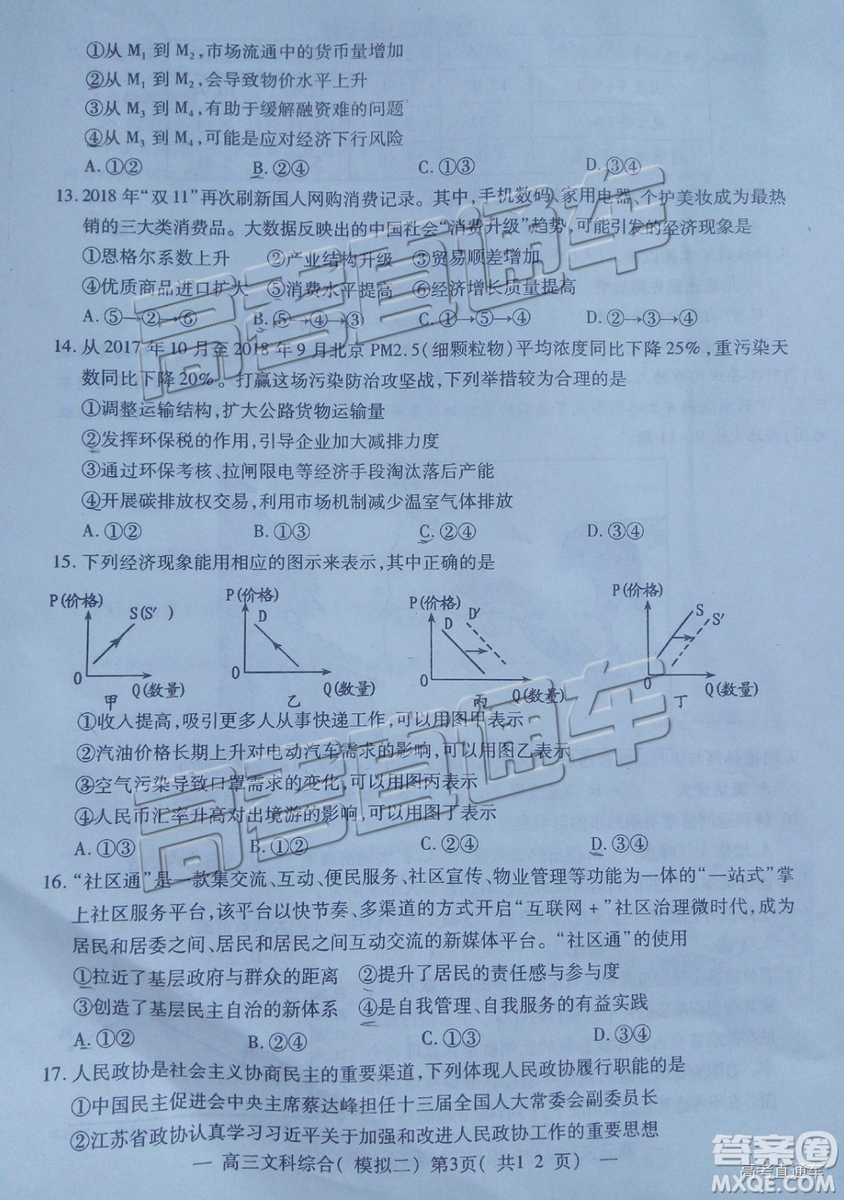 ①从 M₁ 到 M₂,市场流通中的货币量增加
②从 M₁ 到 M₂,会导致物价水平上升
③从 M₃ 到 M₄,有助于缓解融资难的问题
④从 M₃ 到 M₄,可能是应对经济下行风险
A.①② B.②④ C.①③ D.③④
13.2018年“双11”再次刷新国人网购消费记录。其中,手机数码、家用电器、个护美妆成为最热
销的三大类消费品。大数据反映出的中国社会“消费升级”趋势,可能引发的经济现象是
①恩格尔系数上升 ②产业结构升级 ③贸易顺差增加
④优质商品进口扩大 ⑤消费水平提高 ⑥经济增长质量提高
A.⑤→②→⑥ B.⑤→④→③ C.①→⑤→④ D.②→③→④
14.从2017年10月至2018年9月北京PM2.5(细颗粒物)平均浓度同比下降25%,重污染天
数同比下降20%。打赢这场污染防治攻坚战,下列举措较为合理的是
①调整运输结构,扩大公路货物运输量
②发挥环保税的作用,引导企业加大减排力度
③通过环保考核、拉闸限电等经济手段淘汰落后产能
④开展碳排放权交易,利用市场机制减少温室气体排放
A.①② B.①③ C.②④ D.③④
15.下列经济现象能用相应的图示来表示,其中正确的是
P(价格) S(S′) 0 Q(数量) 甲
P(价格) D 0 Q(数量) 乙
P(价格) D D′ 0 Q(数量) 丙
P(价格) S S′ 0 Q(数量) 丁
①收入提高,吸引更多人从事快递工作,可以用图甲表示
②汽油价格长期上升对电动汽车需求的影响,可以用图乙表示
③空气污染导致口罩需求的变化,可以用图丙表示
④人民币汇率升高对出境游的影响,可以用图丁表示
A.①③ B.①④ C.②③ D.③④
16.“社区通”是一款集交流、互动、便民服务、社区宣传、物业管理等功能为一体的“一站式”掌
上社区服务平台,该平台以快节奏、多渠道的方式开启“互联网+”社区治理微时代,成为
居民和居委之间、居民和居民之间互动交流的新媒体平台。“社区通”的使用
①拉近了基层政府与群众的距离 ②提升了居民的责任感与参与度
③创造了基层民主自治的新体系 ④是自我管理、自我服务的有益实践
A.①② B.②④ C.①③ D.③④
17.人民政协是社会主义协商民主的重要渠道,下列体现人民政协履行职能的是
①中国民主促进会中央主席蔡达峰担任十三届全国人大常委会副委员长
②江苏省政协认真学习习近平关于加强和改进人民政协工作的重要思想
— 高三文科综合( 模拟二) 第3页( 共1 2 页) —
高考直通车
高考直通车
答案圈
MXQE.COM
高考直通车